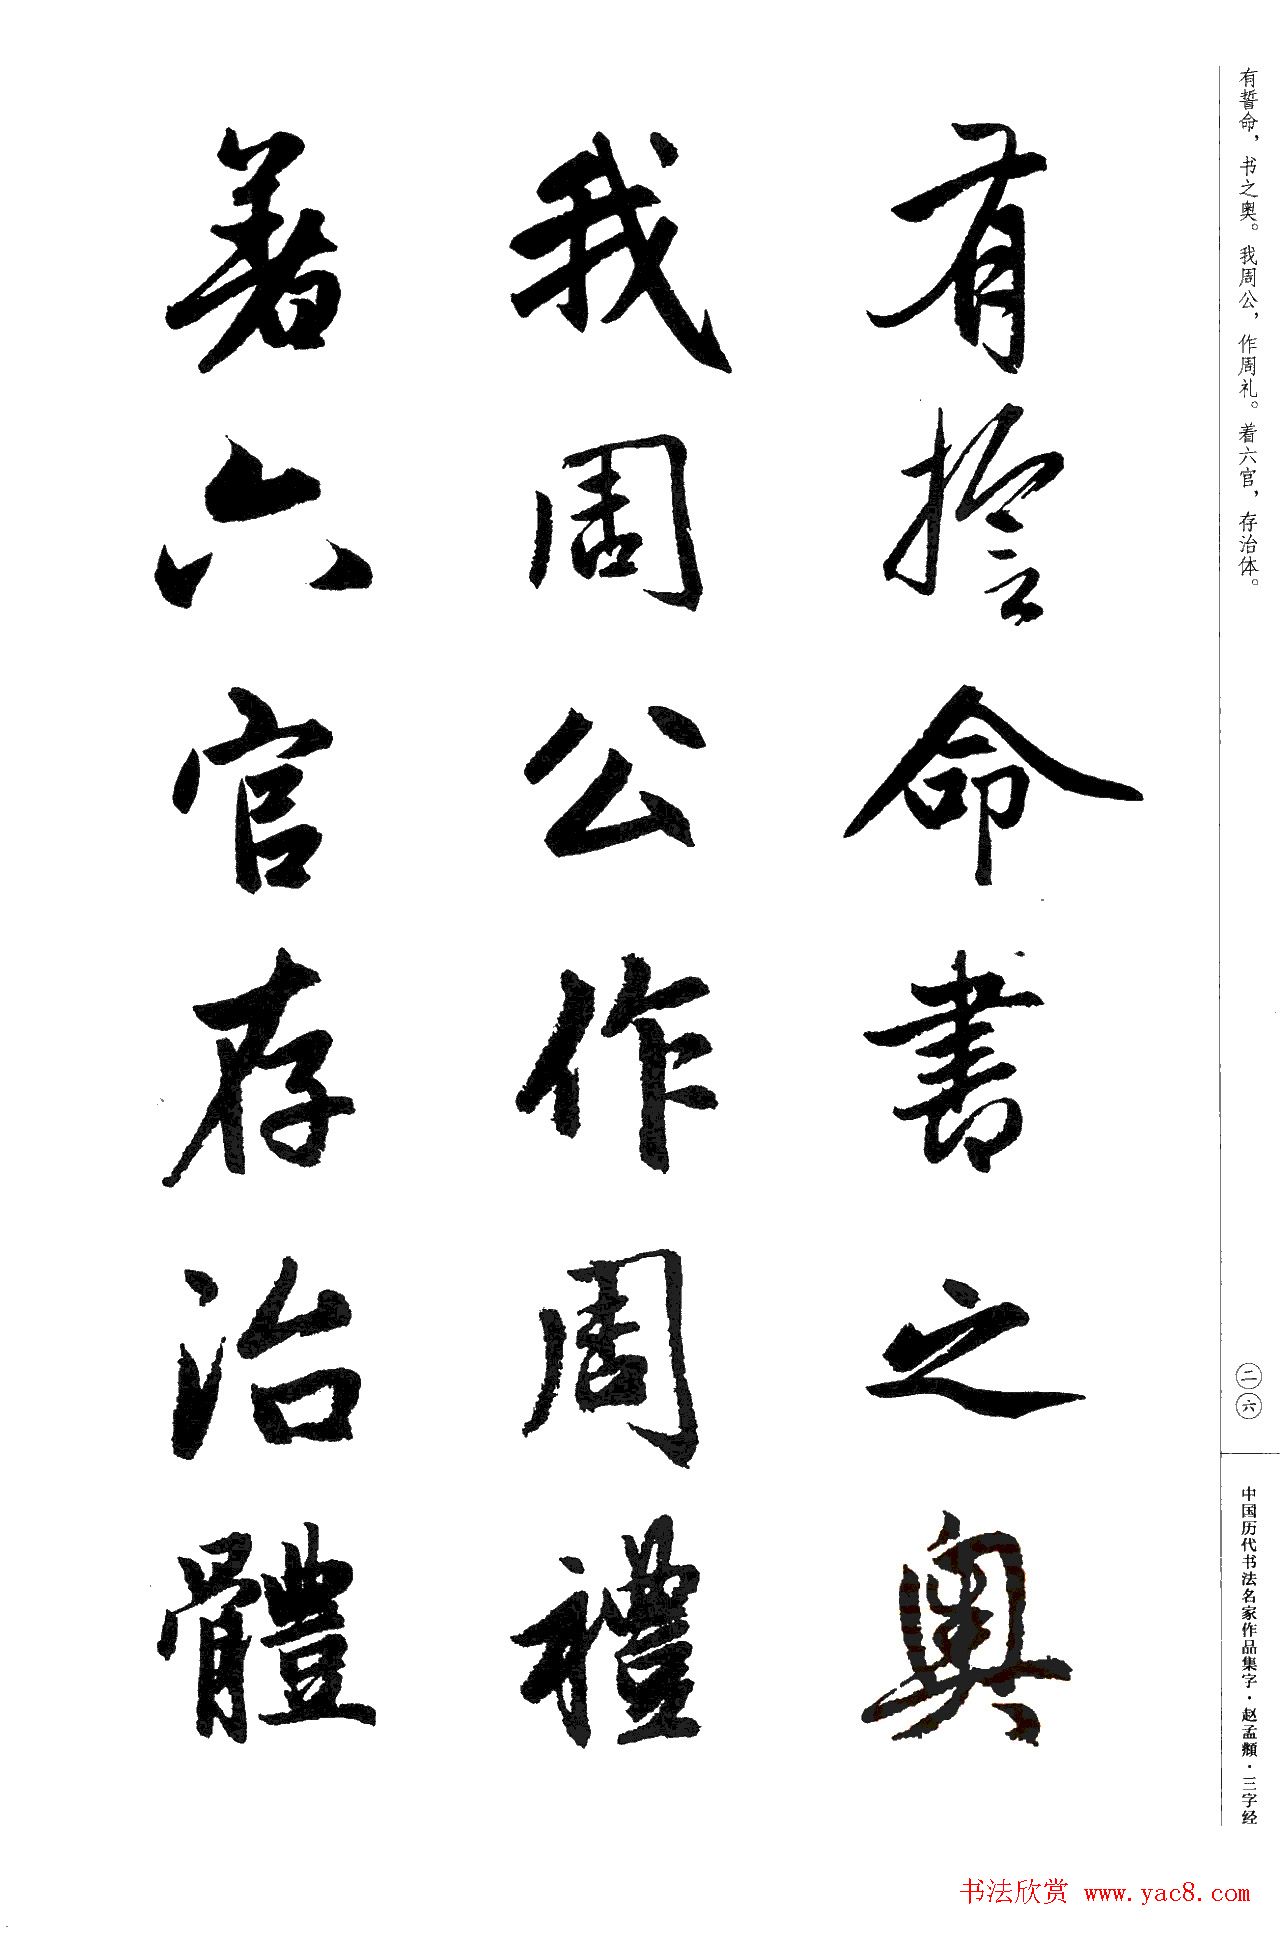 有誓命，书之奥。我周公，作周礼。着六官，存治体。
有誓命書之奥
我周公作周禮
著六官存治體
二六
中国历代书法名家作品集字·赵孟頫·三字经
书法欣赏 www.yac8.com